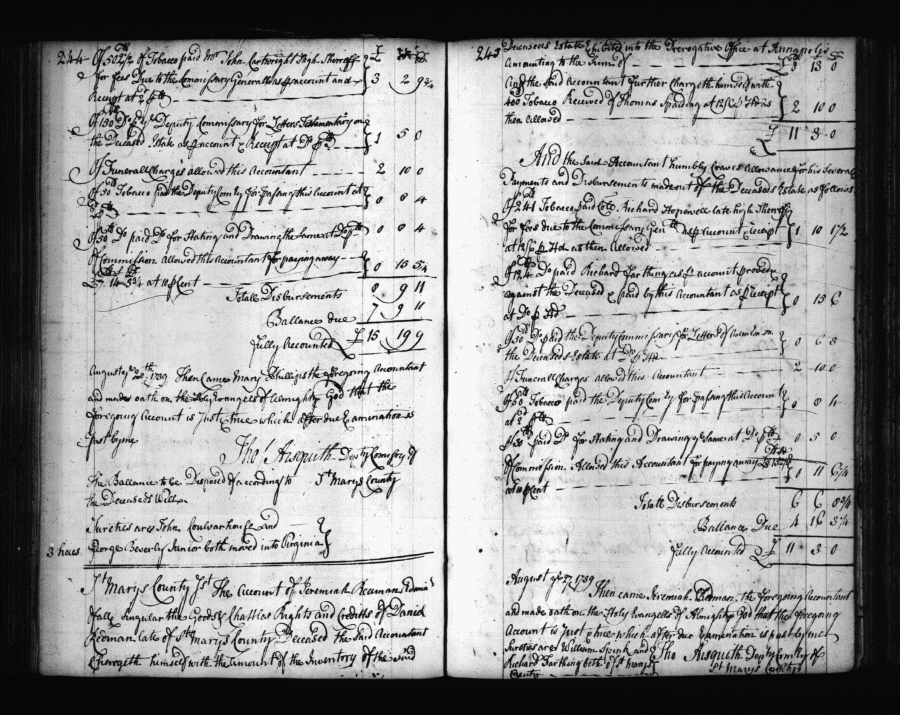 244 Of 502 1/2 lb of Tobacco paid Mr John Cartwright high Sherriff
for fees Due to the Commissary Generall as p account and 3 2 9 3/4
Receipt at 2d p lb
Of 150 Do Deputy Commissary for Letters Testamentary on
the Deceased Estate as p account & Receipt at Do p lb 1 5 0
Of Funerall Charges allowed this Accountant 2 10 0
Of 50 Tobacco paid the Deputy Comry for passing this Account at 0 8 4
2d p lb
Of 50 Do paid Do for Stating and Drawing the Same at Do p lb 0 8 4
Of Commission Allowed this Accountant for paying away
£7.14.5 3/4 at 10 p Cent 0 15 5 1/4
Totale Disbursements 8 9 11
Ballance due 7 9 11
Fully Accounted £ 15 19 9
August 1739 Then Came Mary Phillips the foregoing Accountant
and made oath on the Holy Evangels of Almighty God that the
foregoing Account is Just & true which after due Examination is
past by me
Tho Aisquith Depty Comissry of
St Marys County
the Ballance to be Disposed of according to
the Deceaseds Will
Sureties are John and
George Beverly Junior both moved into Virginia
3 heirs
St Marys County Sst The Account of Jeremiah Redman Admr
of all & Singular the Goods & Chattles Rights and Credits of Daniel
Redman late of St Marys County Deceased the Said Accountant
Chargeth himself with the Amount of the Inventory of the Said
245 Deceaseds Estate Exhibited into the Prerogative Office at Annapolis
Amounting to the Sum of 8 13 0
And the said Accountant further Chargeth himself with
400 Tobacco Received of Thomas Spalding at 12/6 p Hd is
then allowed 2 10 0
£ 11 3 0
And the Said Accountant Humbly Craves Allowance for his Several
Payments and Disbursements made out of the Deceaseds Estate as follows
Of 241 Tobacco paid Coll. Richard Hopewell late high Sherriff
for fees due to the Commissary Genll as p Account & receipt 1 10 1 1/2
at 12/6 p Hd as then Allowed
Of 124 Do paid Richard Farthing as p account proved
against the Deceased & paid by this Accountant as p Receipt 0 15 6
at Do p Hd
Of 50 Do paid the Deputy Commissary for Letters of Admn on
the Deceaseds Estate at Do p Hd 0 6 3
Of Funerall Charges allowed this Accountant 2 10 0
Of 50 Tobacco paid the Deputy Comry for passing this Account 0 8 4
at 2d p lb
Of 30 paid Do for Stating and Drawing ye Same at Do p lb 0 5 0
Of Commission Allowed this Accountant for paying away
at 10 p Cent 0 11 6 1/4
Totale Disbursements 6 6 8 3/4
Ballance Due 4 16 3 1/4
Fully Accounted £ 11 3 0
August ye 27 1739
Then came Jeremiah Redman the foregoing Accountant
and made oath on the Holy Evangels of Almighty God that the foregoing
Account is Just & true which after due Examination is past by me
Sureties are William Spink and Tho Aisquith Depty Comry of
Richard Farthing both of St Marys St Marys County
County